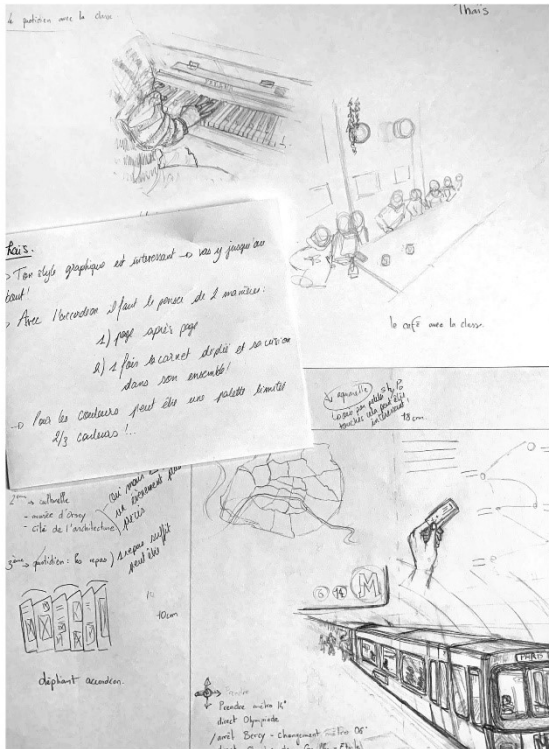 le quotidien avec la classe
Thaïs
Thaïs.
→ Ton style graphique est interessant → vas y jusqu'au
bout!
→ Avec l'accordéon il faut le penser de 2 manières:
1) page après page
2) 1 fois le carnet déplié et sa vision
dans son ensemble!
→ Pour les couleurs peut être une palette limitée
2/3 couleurs!...
le café avec la classe.
aquarelle
18 cm.
2ème → culturelle
- musée d'Orsay
- cité de l'architecture
oui mais
un évènement plus
précis
3ème → quotidien: les repas
1 repas suffit
peut être
10cm
dépliant accordéon.
6 14 M
Prendre
Prendre métro 14
direct Olympiade
/ arrêt Bercy - changement métro 06